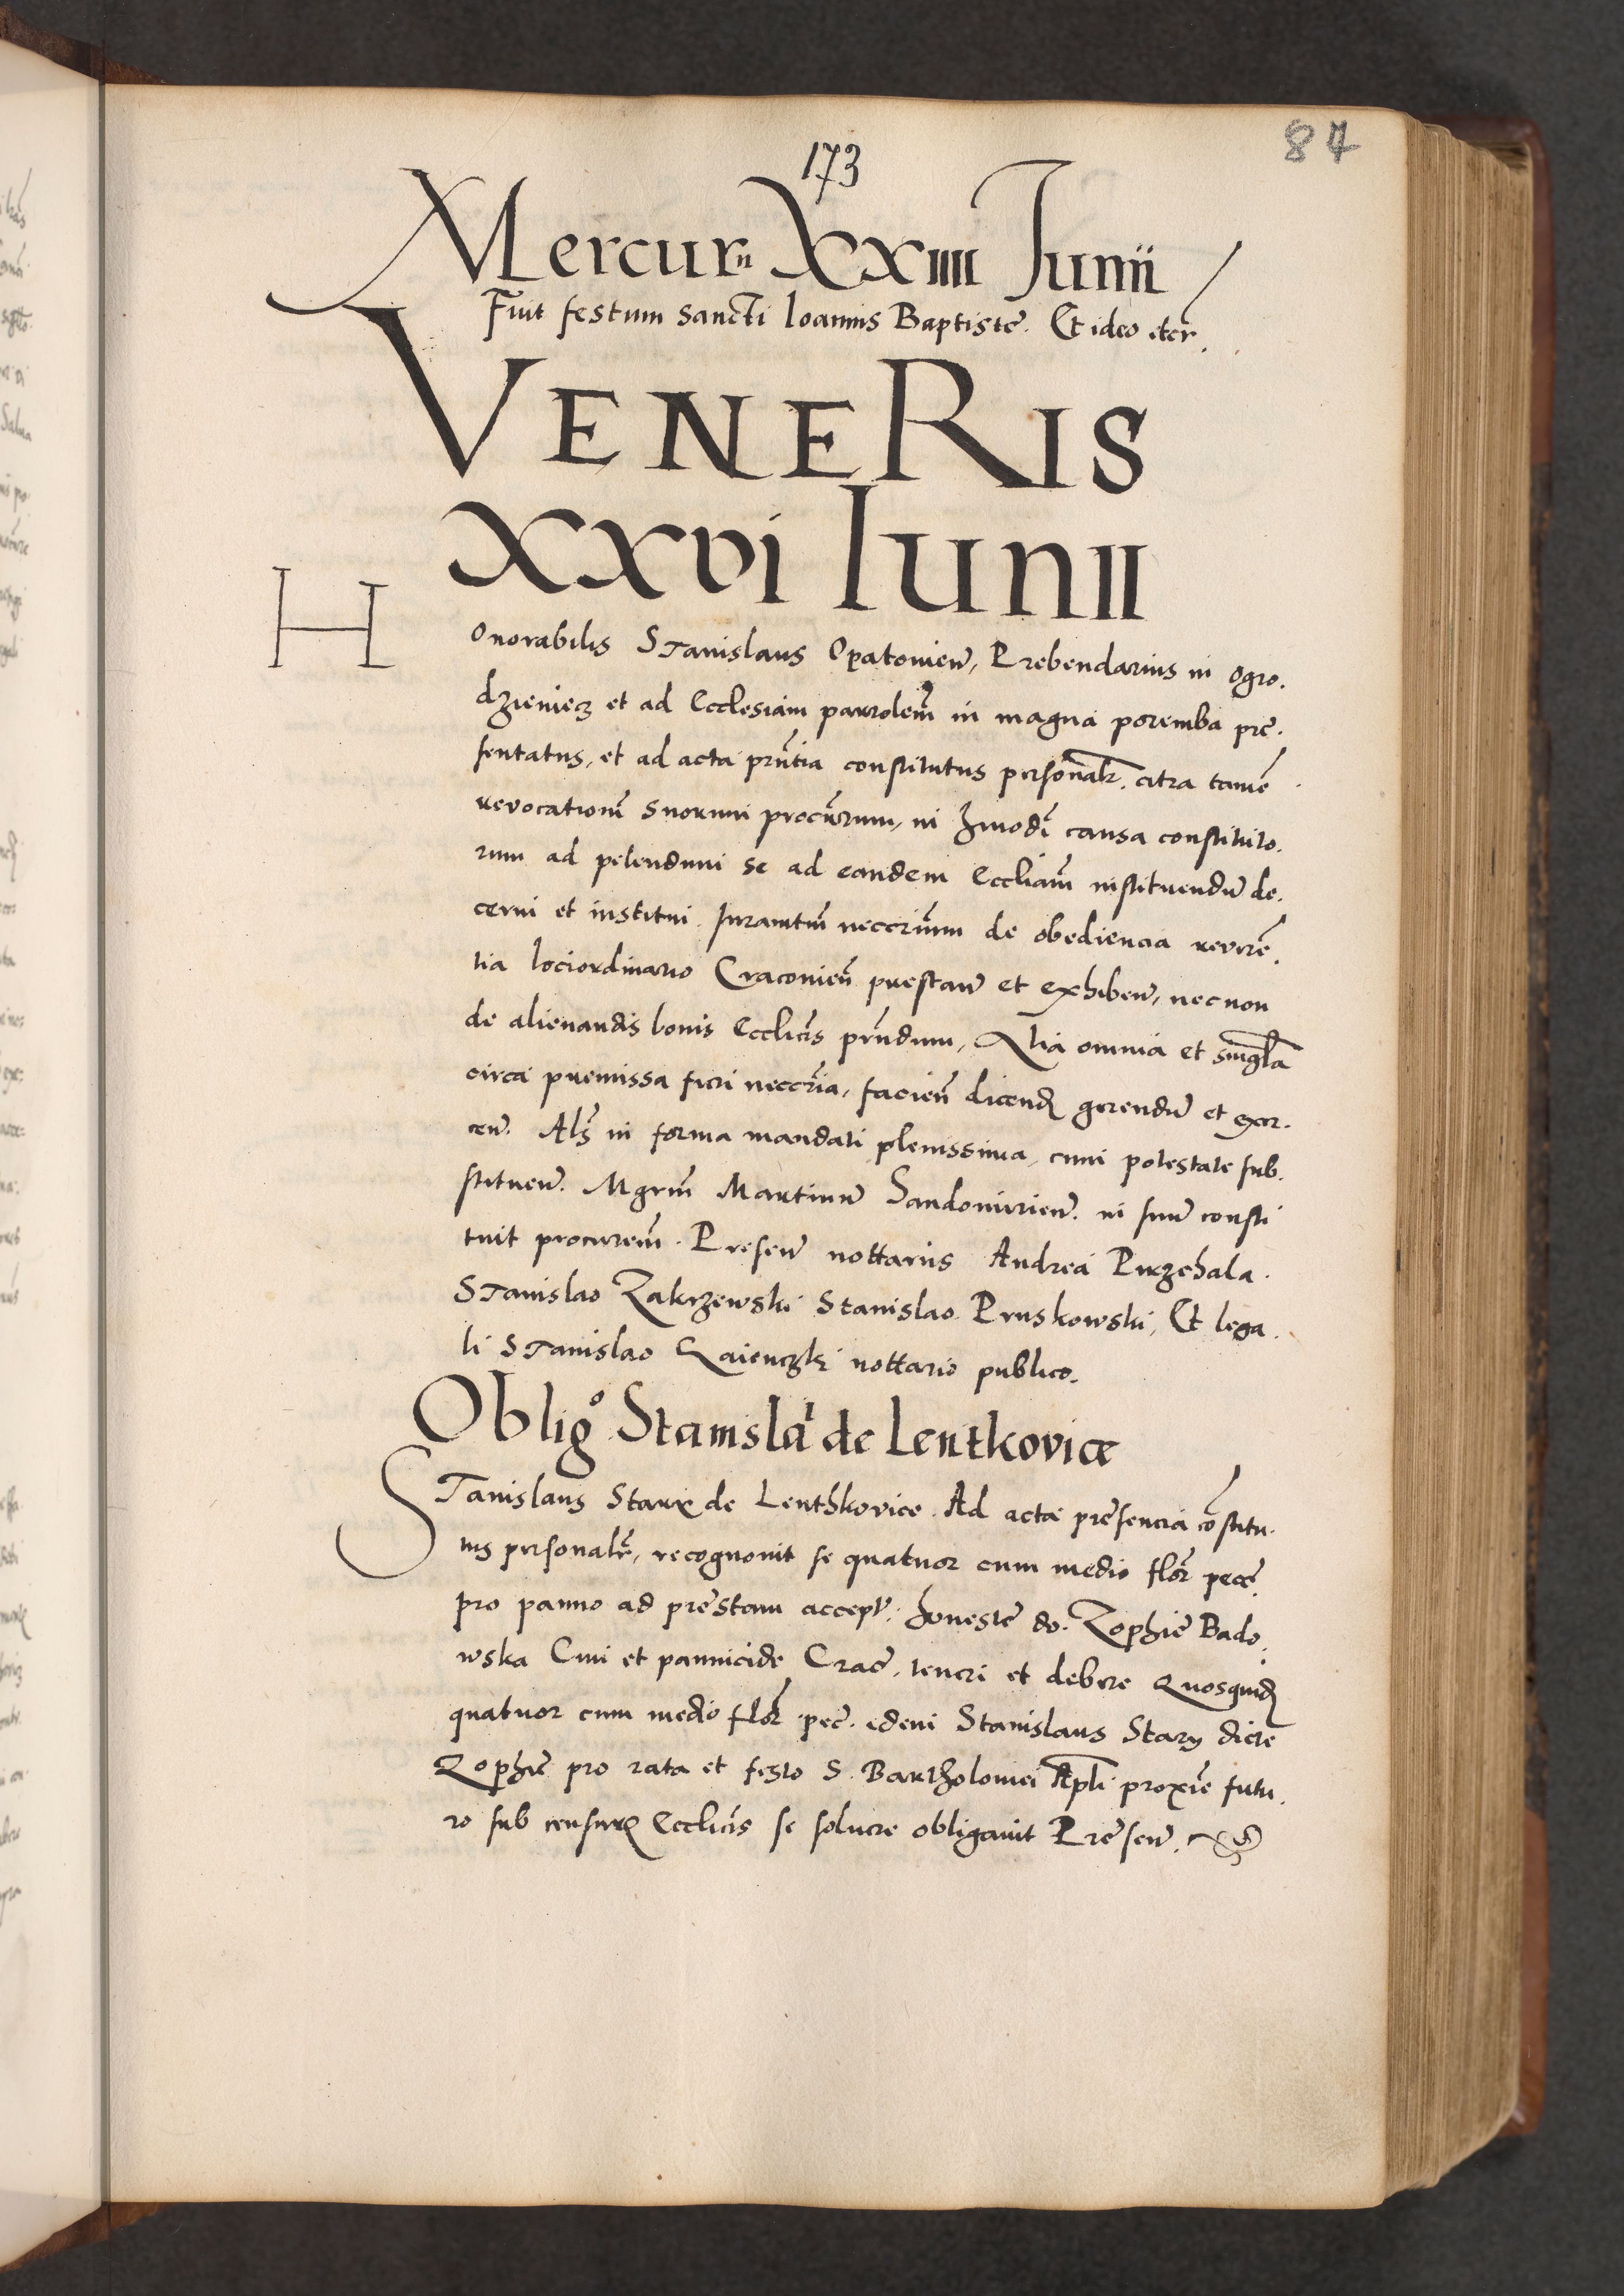 173
84
Mercurii XXIIII Junii
Fuit festum Sancti Ioannis Baptiste. Et ideo etcr.
VENERIS
XXVI IUNII
Honorabilis Stanislaus Opatovien, Prebendarius in Ogro.
dzieniecz et ad Ecclesiam parrolem in magna poremba pre.
sentatus, et ad acta prntia constitutus personalr. citra tamē
revocationem suorum procurum, in hmodi causa constituto.
rum ad petendum se ad eandem Eccliam instituendū de.
cerni et institui. Iuramtum neccrium de obediencia reverē.
tia lociordinario Cracovien prestan et exhiben, necnon
de alienandis bonis Ecclicis prndum, Alia omnia et singla
circa premissa fieri neccria, facien dicend gerendū et exer.
cen. Als in forma mandati plenissima, cum potestate sub.
stituen. Mgrm Martinū Sandomirien. in suū consti
tuit procurem. Presen nottariis Andrea Przchala.
Stanislao Zakrzewski Stanislao Pruskowski, Et lega.
li Stanislao Zaienczki nottario publico.
Obligo Stanislai de Lentkovice
Stanislaus Starx de Lenthkovice. Ad acta presencia cōstitu.
tus personalr, recognovit se quatuor cum medio flor pecc.
pro panno ad prestam accept. honeste do. Zophie Bado.
wska Civi et pannicide Crac. teneri et debere Quosquid
quatuor cum medio flor pec. idem Stanislaus Stary dicte
Zophie pro rata et festo S. Bartholomei Apli proxie futu.
ro sub censuris Ecclicis se solvere obligavit Presen.